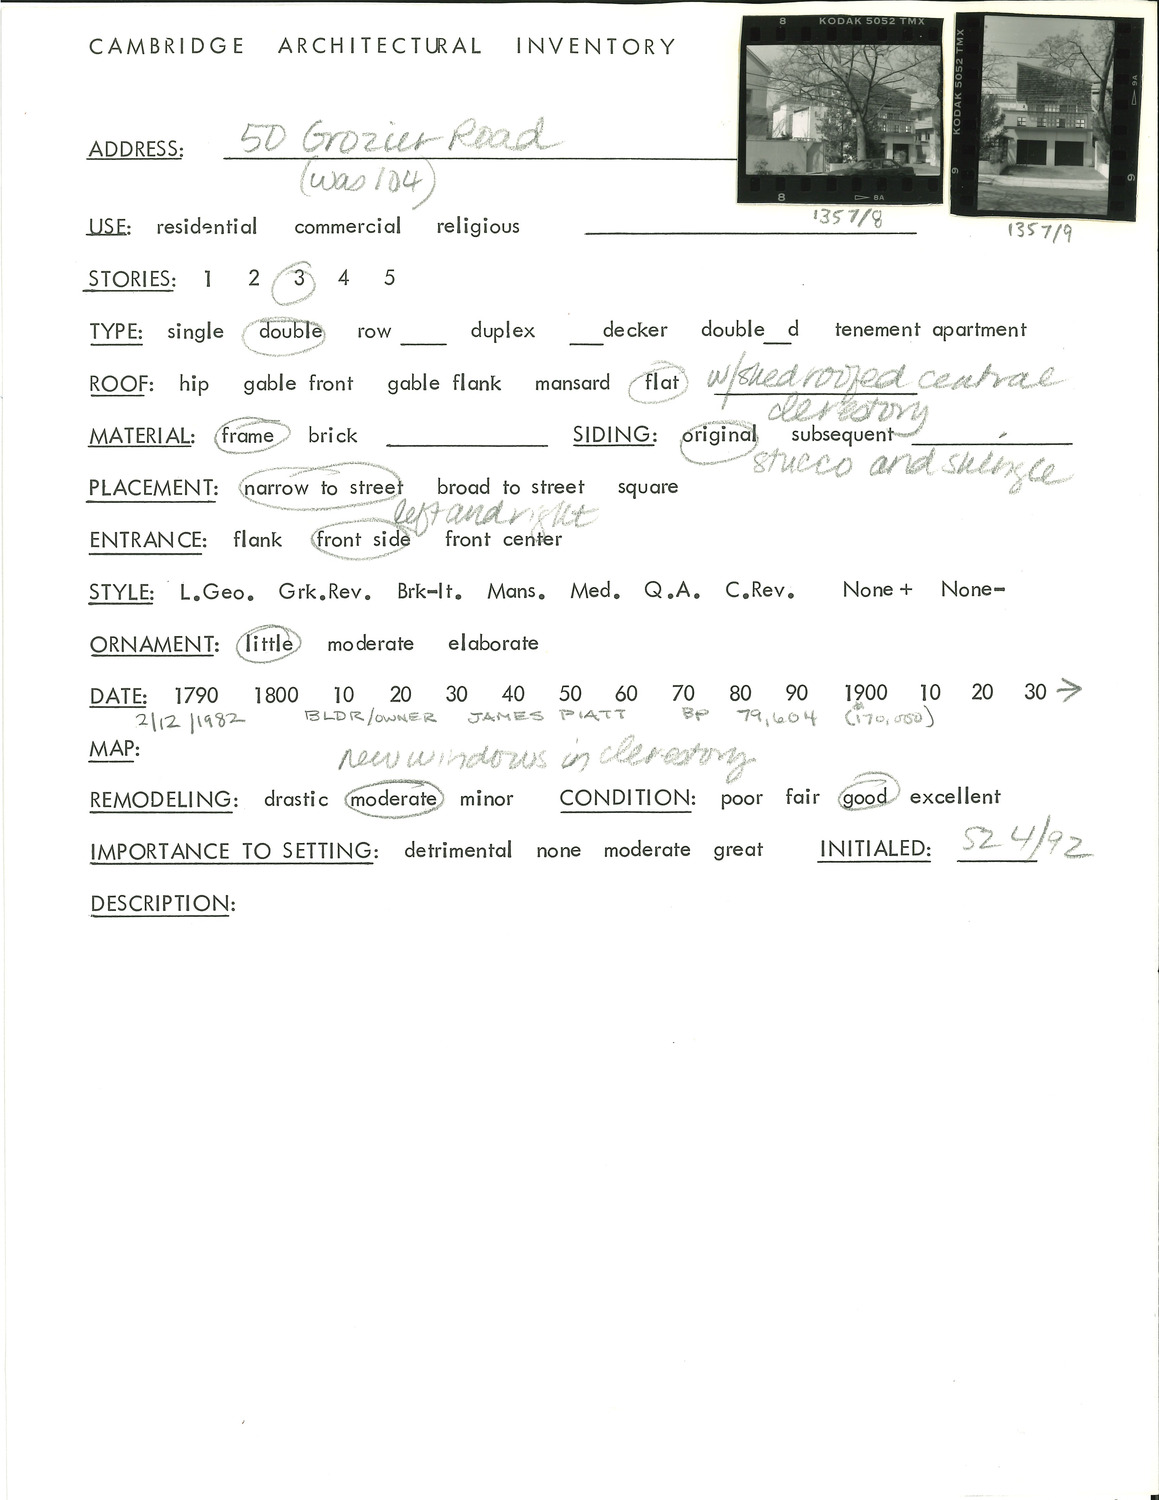 CAMBRIDGE ARCHITECTURAL INVENTORY
8 KODAK 5052 TMX
8 8A
1357/8
KODAK 5052 TMX
9 9A 9
1357/9
ADDRESS: 50 Grozier Road
(was 104)
USE: residential commercial religious
STORIES: 1 2 3 4 5
TYPE: single double row ___ duplex ___decker double__d tenement apartment
ROOF: hip gable front gable flank mansard flat w/shed roofed central
clerestory
MATERIAL: frame brick SIDING: original subsequent
stucco and shingle
PLACEMENT: narrow to street broad to street square
left and right
ENTRANCE: flank front side front center
STYLE: L.Geo. Grk.Rev. Brk-It. Mans. Med. Q.A. C.Rev. None+ None-
ORNAMENT: little moderate elaborate
DATE: 1790 1800 10 20 30 40 50 60 70 80 90 1900 10 20 30 →
2/12/1982 BLDR/OWNER JAMES PIATT BP 79,604 ($170,000)
MAP:
new windows in clerestory
REMODELING: drastic moderate minor CONDITION: poor fair good excellent
IMPORTANCE TO SETTING: detrimental none moderate great INITIALED: SZ 4/92
DESCRIPTION: